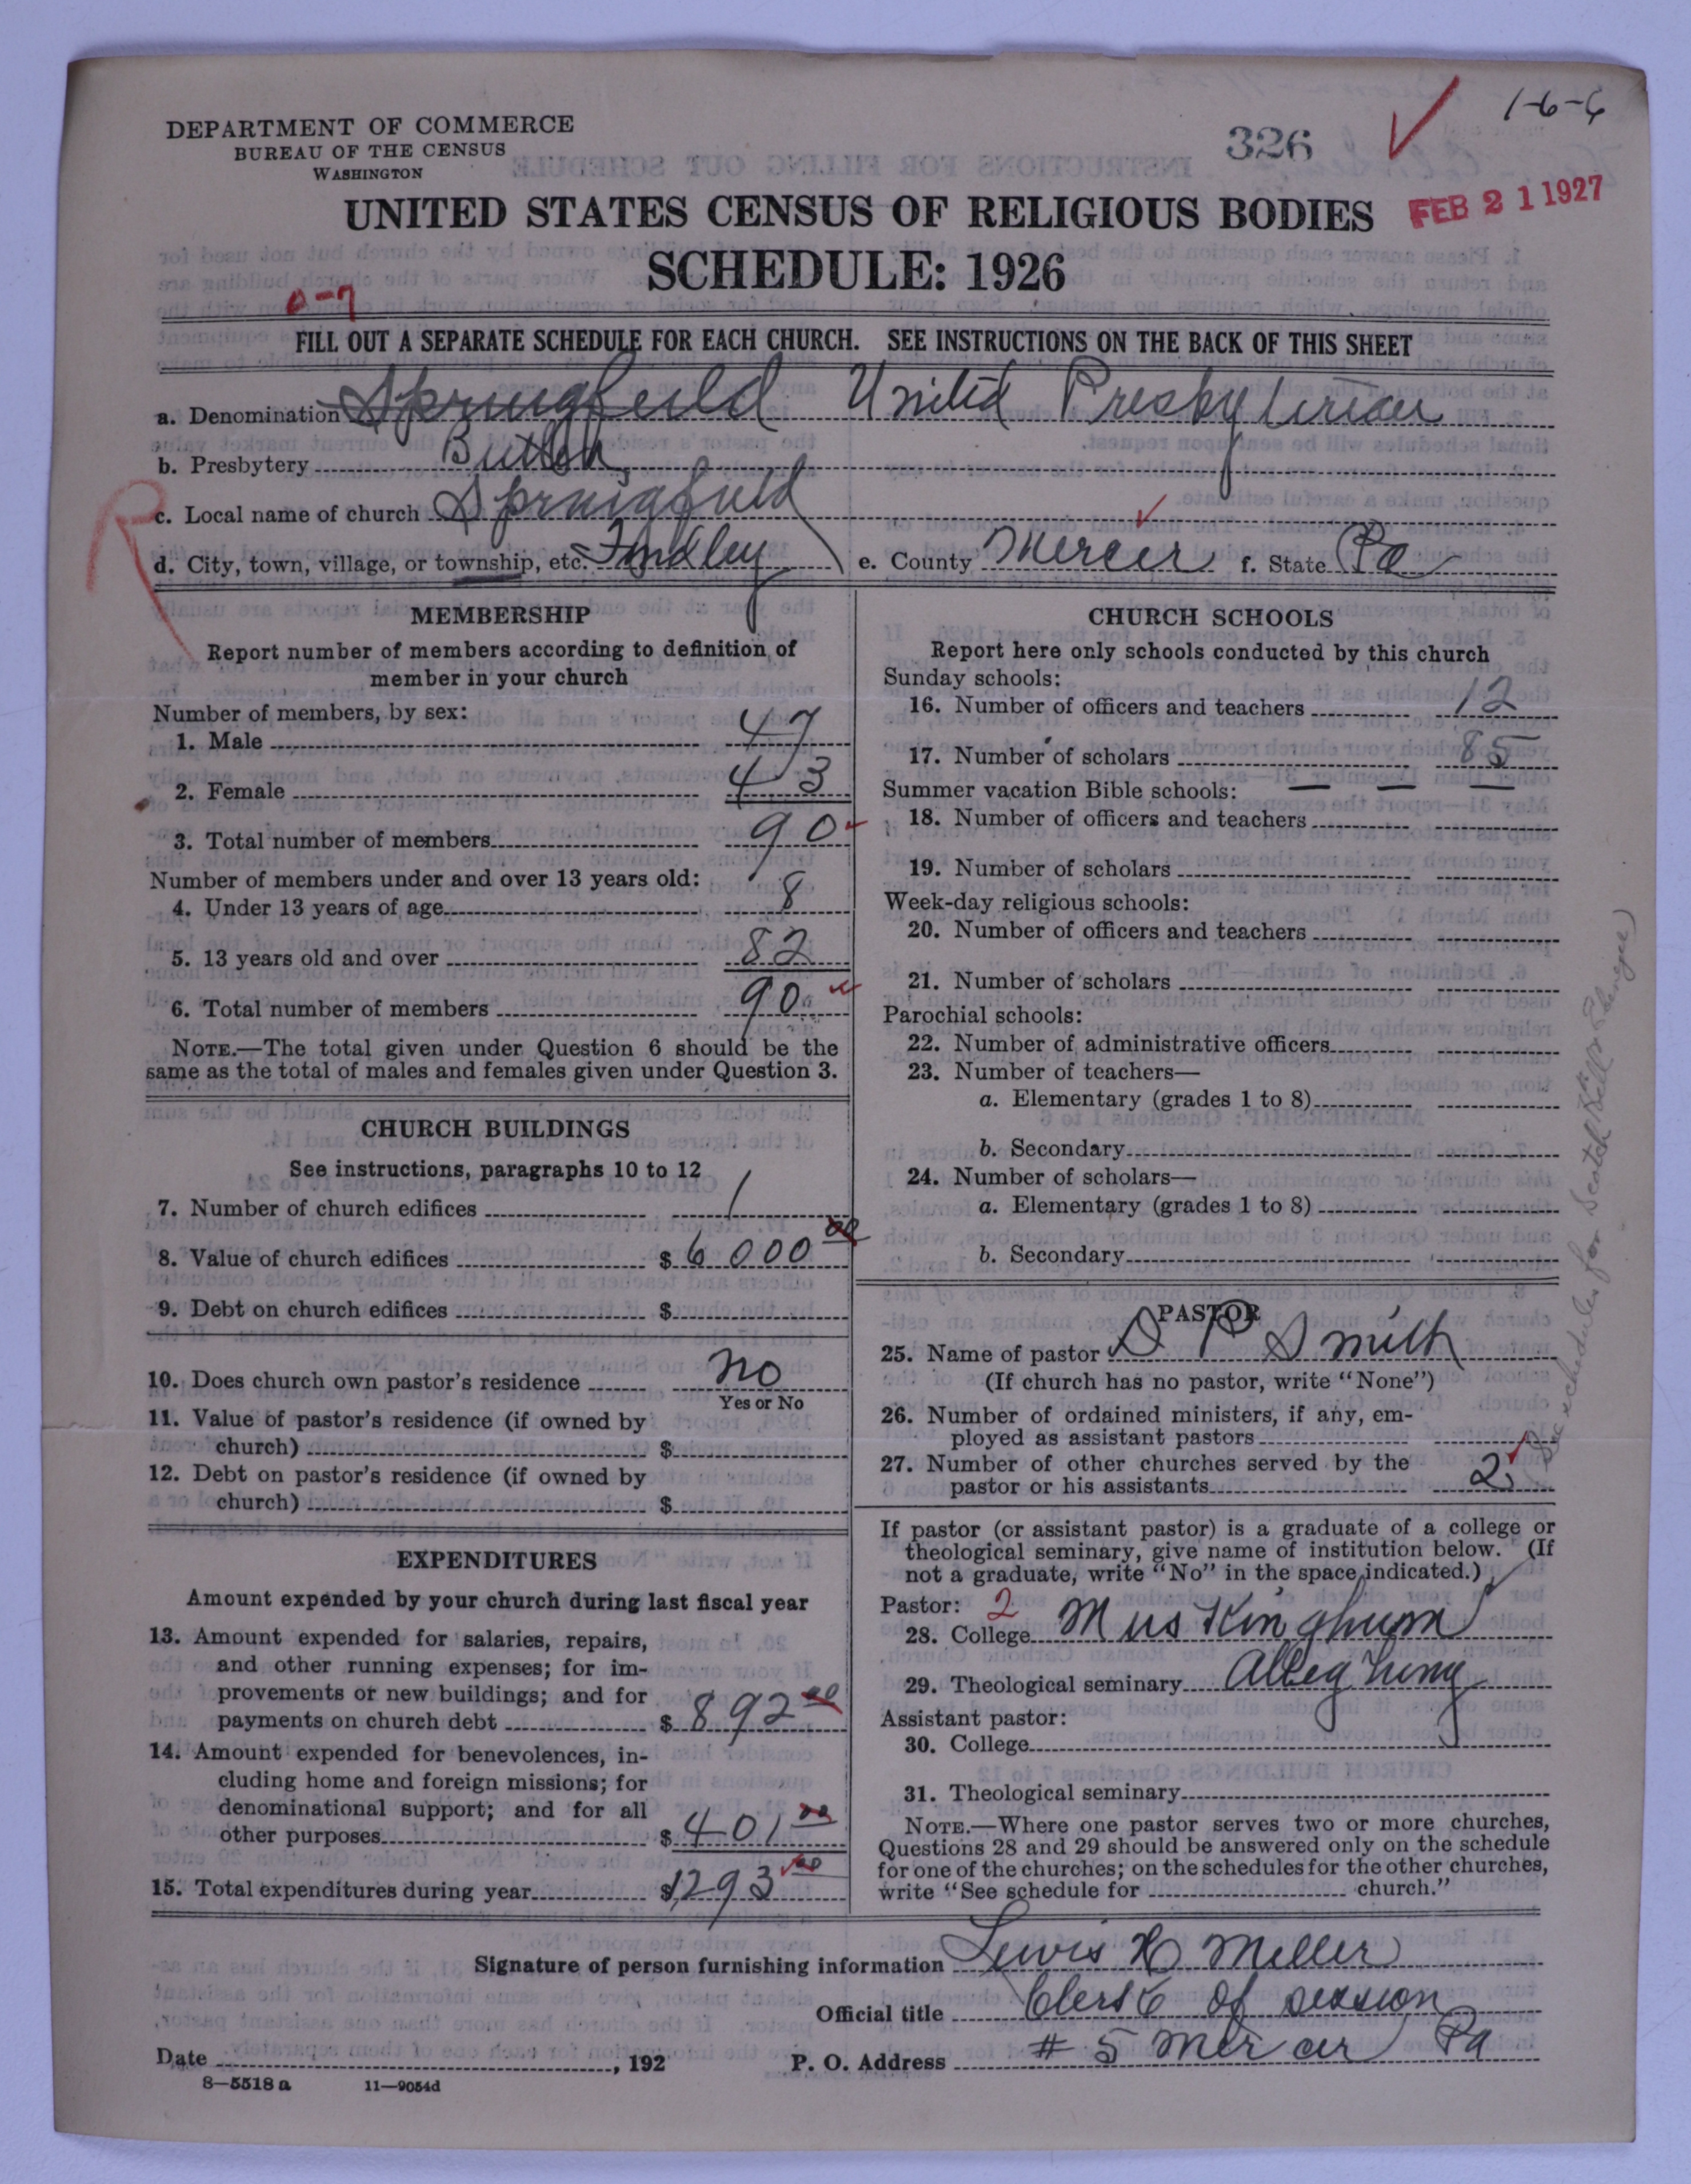 1-6-6
326
DEPARTMENT OF COMMERCE
BUREAU OF THE CENSUS
WASHINGTON
UNITED STATES CENSUS OF RELIGIOUS BODIES
FEB 21 1927
SCHEDULE: 1926
0-7
FILL OUT A SEPARATE SCHEDULE FOR EACH CHURCH. SEE INSTRUCTIONS ON THE BACK OF THIS SHEET
a. Denomination Springfield United Presbyterian
b. Presbytery Butler
c. Local name of church Springfield
R
d. City, town, village, or township, etc. Findley e. County Mercer f. State Pa
MEMBERSHIP
Report number of members according to definition of
member in your church
Number of members, by sex:
1. Male 47
2. Female 43
3. Total number of members 90
Number of members under and over 13 years old:
4. Under 13 years of age 8
5. 13 years old and over 82
6. Total number of members 90
NOTE.—The total given under Question 6 should be the
same as the total of males and females given under Question 3.
CHURCH BUILDINGS
See instructions, paragraphs 10 to 12
7. Number of church edifices 1
8. Value of church edifices $ 6000 00
9. Debt on church edifices $
10. Does church own pastor's residence no
Yes or No
11. Value of pastor's residence (if owned by
church) $
12. Debt on pastor's residence (if owned by
church) $
EXPENDITURES
Amount expended by your church during last fiscal year
13. Amount expended for salaries, repairs,
and other running expenses; for im-
provements or new buildings; and for
payments on church debt $ 892 00
14. Amount expended for benevolences, in-
cluding home and foreign missions; for
denominational support; and for all
other purposes $ 401 00
15. Total expenditures during year $1293 00
CHURCH SCHOOLS
Report here only schools conducted by this church
Sunday schools:
16. Number of officers and teachers 12
17. Number of scholars 85
Summer vacation Bible schools: — — —
18. Number of officers and teachers
19. Number of scholars
Week-day religious schools:
20. Number of officers and teachers
21. Number of scholars
Parochial schools:
22. Number of administrative officers
23. Number of teachers—
a. Elementary (grades 1 to 8)
b. Secondary
24. Number of scholars—
a. Elementary (grades 1 to 8)
b. Secondary
PASTOR
25. Name of pastor D P Smith
(If church has no pastor, write "None")
26. Number of ordained ministers, if any, em-
ployed as assistant pastors
27. Number of other churches served by the
pastor or his assistants 2
If pastor (or assistant pastor) is a graduate of a college or
theological seminary, give name of institution below. (If
not a graduate, write "No" in the space indicated.)
Pastor: 2
28. College Muskinghum
29. Theological seminary Allegheny
Assistant pastor:
30. College
31. Theological seminary
NOTE.—Where one pastor serves two or more churches,
Questions 28 and 29 should be answered only on the schedule
for one of the churches; on the schedules for the other churches,
write "See schedule for church."
See schedules for Scotch Hill
Signature of person furnishing information Lewis H Miller
Official title Clerk of session
Date , 192 P. O. Address # 5 Mercer Pa
8—5518 a 11—9054d